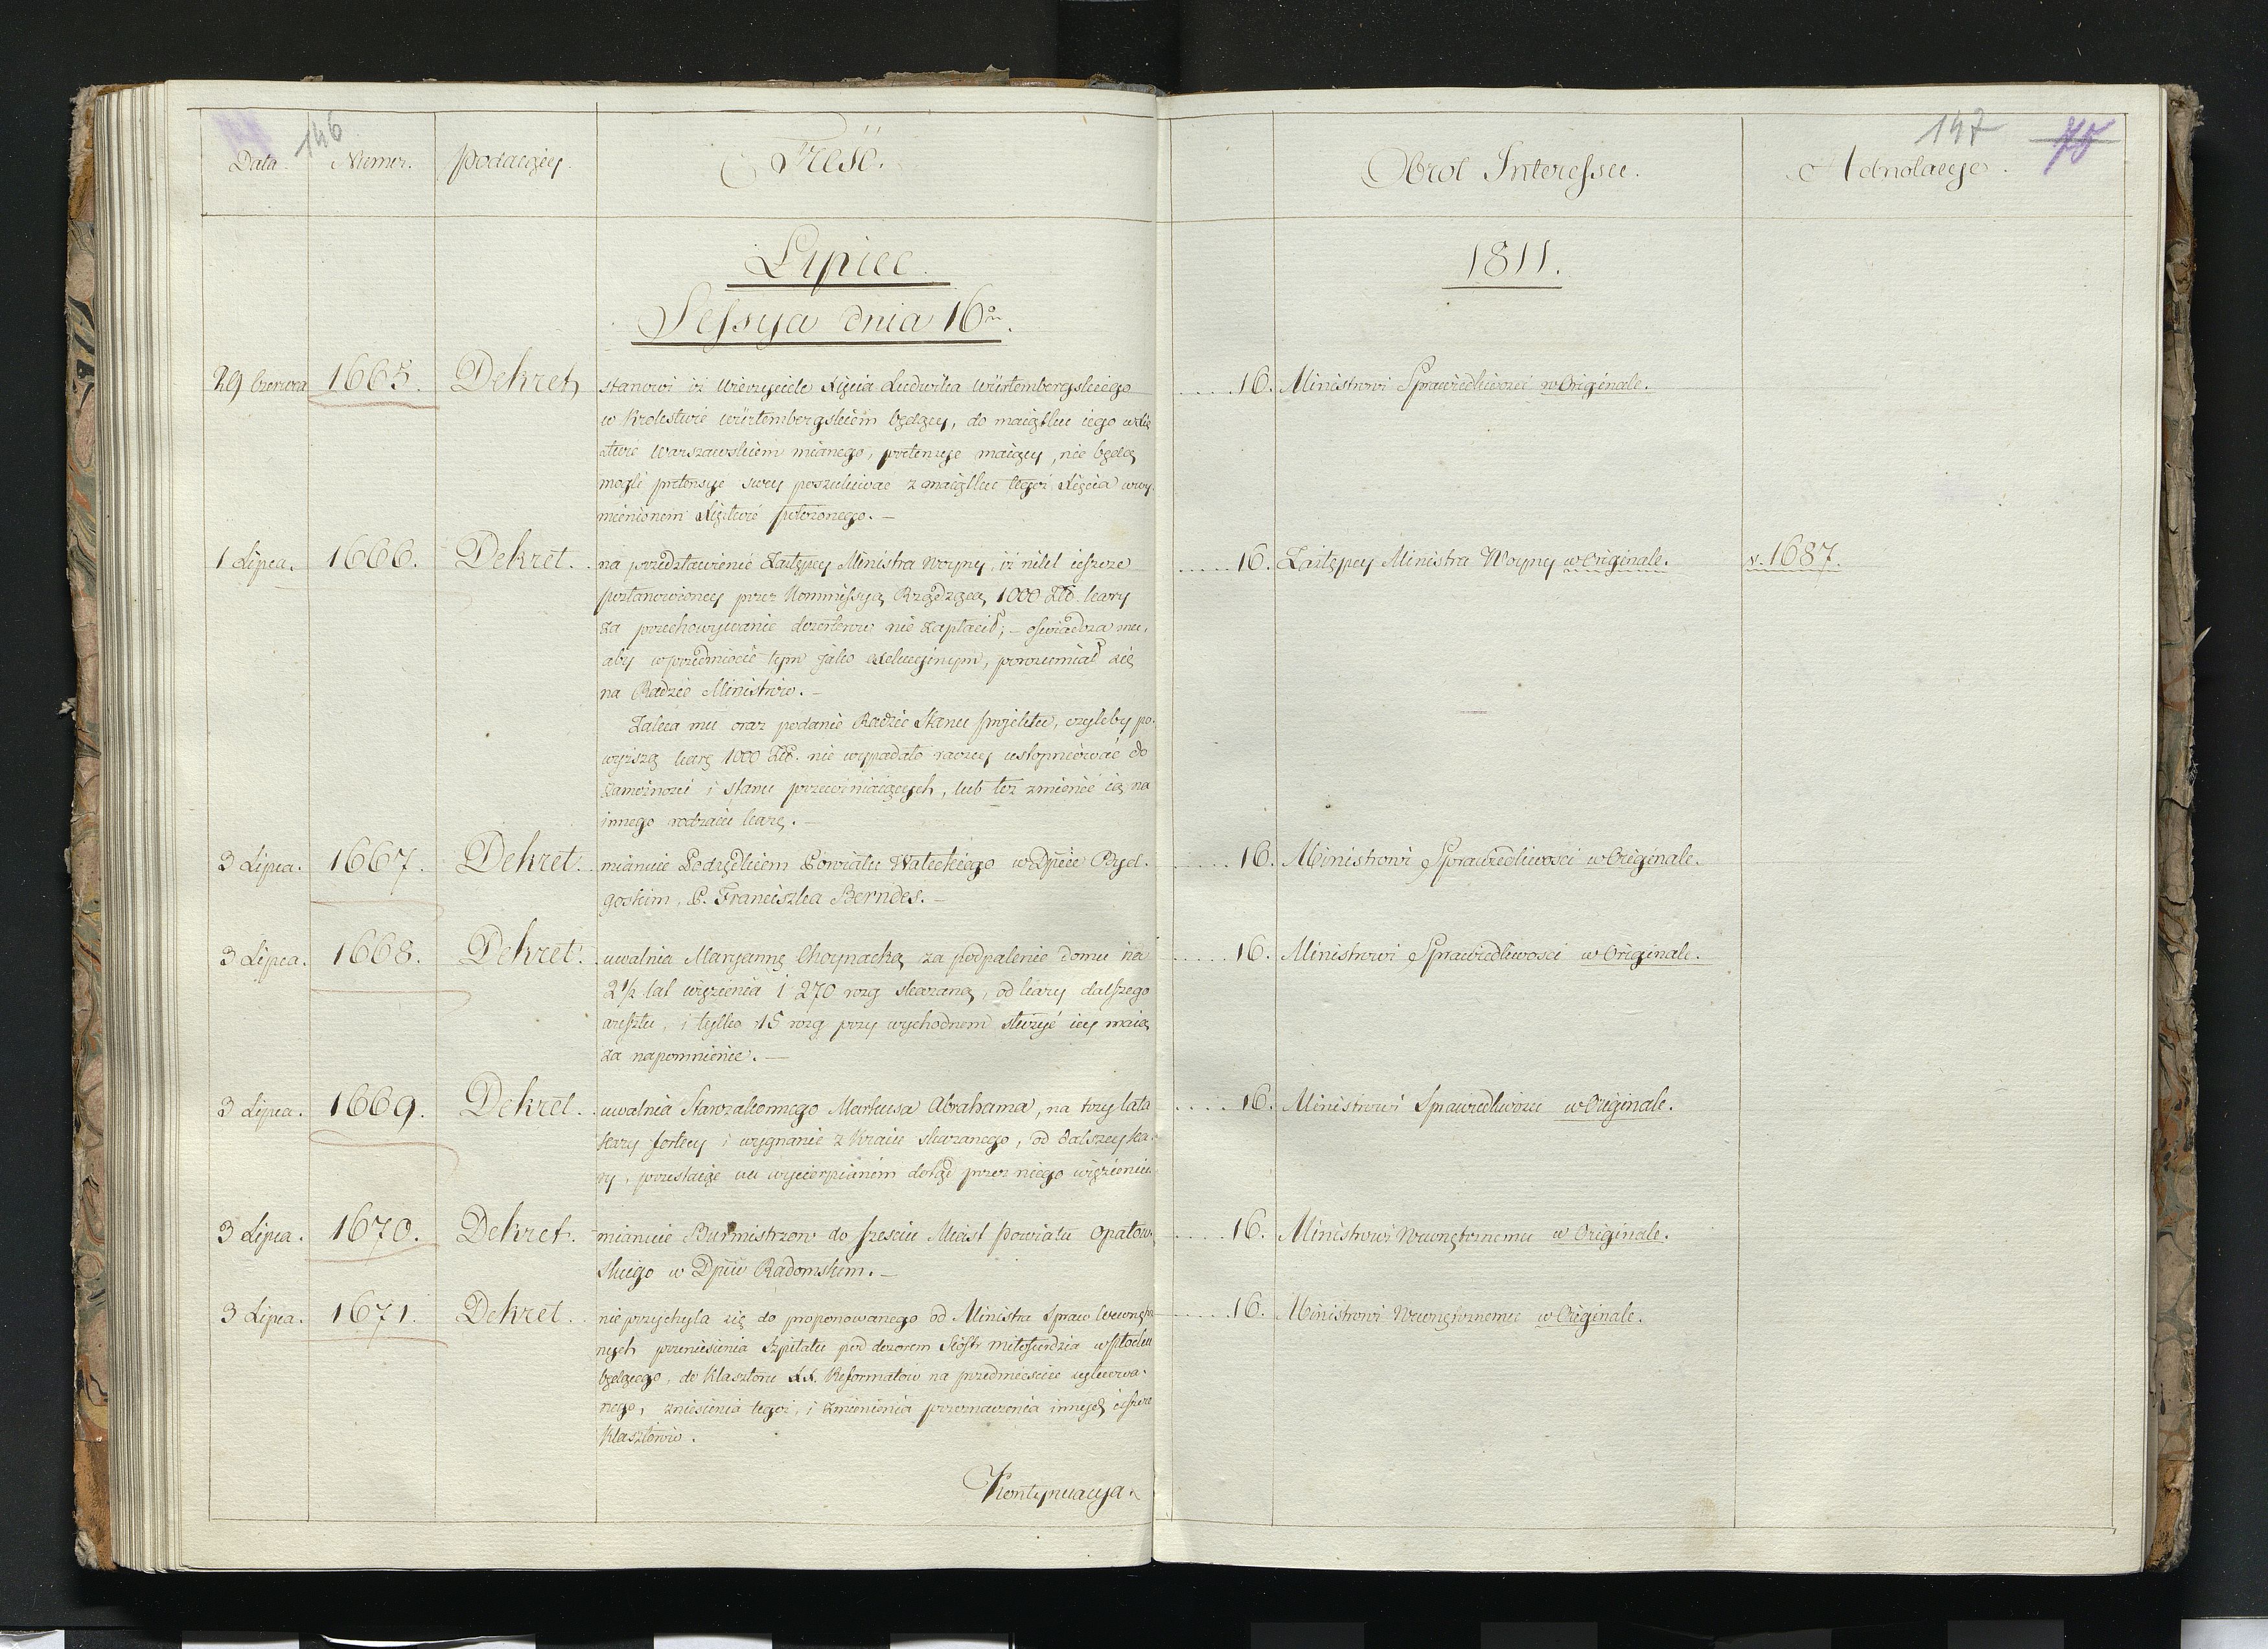 146
Data. Numer. Podaiący. Treść.
Lipiec.
Sessya dnia 16º.
29 Czerwca 1665. Dekret stanowi iż Wierzyciele Xięcia Ludwika Würtembergskiego
w Krolestwie Würtembergskiem będący, do maiątku iego w Xię
stwie Warszawskiem mianego, pretensye maiący, nie będą
mogli pretensye swey poszukiwac z maiątku tegoż Xięcia w wy
mienionem Xięstwie położonego. —
1 Lipca. 1666. Dekret. na przedstawienie Zastępcy Ministra Woyny, iż nikt ieszcze
postanowioney przez Kommissyą Rządzącą 1000 Złł. kary
za przechowywanie dezerterow nie zapłacił; — oswiadcza mu,
aby w przedmiocie tym jako exekucyinym, porozumiał się
na Radzie Ministrów. —
Zaleca mu oraz podanie Radzie Stanu projektu, czyliby po-
wyższą karę 1000 Złł. nie wypadało raczey ustopniować do
zamożności i stanu przewiniaiących, lub też zmienić ią na
innego rodzaiu karę. —
3 Lipca. 1667. Dekret. mianuie Podsędkiem Powiatu Wałeckiego w Dpcie Byd-
goskim, P. Franciszka Berndes. —
3 Lipca. 1668. Dekret. uwalnia Maryannę Choynacką za podpalenie domu na
2 1/2 lat więzienia i 270 rozg skazaną, od kary dalszego
aresztu, i tylko 15 rozg przy wychodnem służyć iey maią
za napomnienie. —
3 Lipca. 1669. Dekret. uwalnia Starozakonnego Markusa Abrahama, na trzy lata
kary fortecy i wygnanie z Kraiu skazanego, od dalszey ka-
ry, przestaiąc na wycierpianem dotąd przez niego więzieniu.
3 Lipca. 1670. Dekret. mianuie Burmistrzow do sześciu Miast Powiatu Opatow-
skiego w Dpcie Radomskim. —
3 Lipca. 1671. Dekret. nie przychyla się do proponowanego od Ministra Spraw Wewnętrz
nych przeniesienia Szpitalu pod dozorem Sióstr Miłosierdzia w Płocku
będącego, do Klasztoru XX. Reformatow na przedmieście
nego, zniesienia tegoż, i zmienienia przeznaczenia innych ieszcze
Klasztorów.
Kontynuacya.
147 75
Obrot Interessu. Adnotacye.
1811.
16. Ministrowi Sprawiedliwości w Originale.
16. Zastępcy Ministra Woyny w Originale. v. 1687.
16. Ministrowi Sprawiedliwosci w Originale.
16. Ministrowi Sprawiedliwosci w Originale.
16. Ministrowi Sprawiedliwości w Originale.
16. Ministrowi Wewnętrznemu w Originale.
16. Ministrowi Wewnętrznemu w Originale.